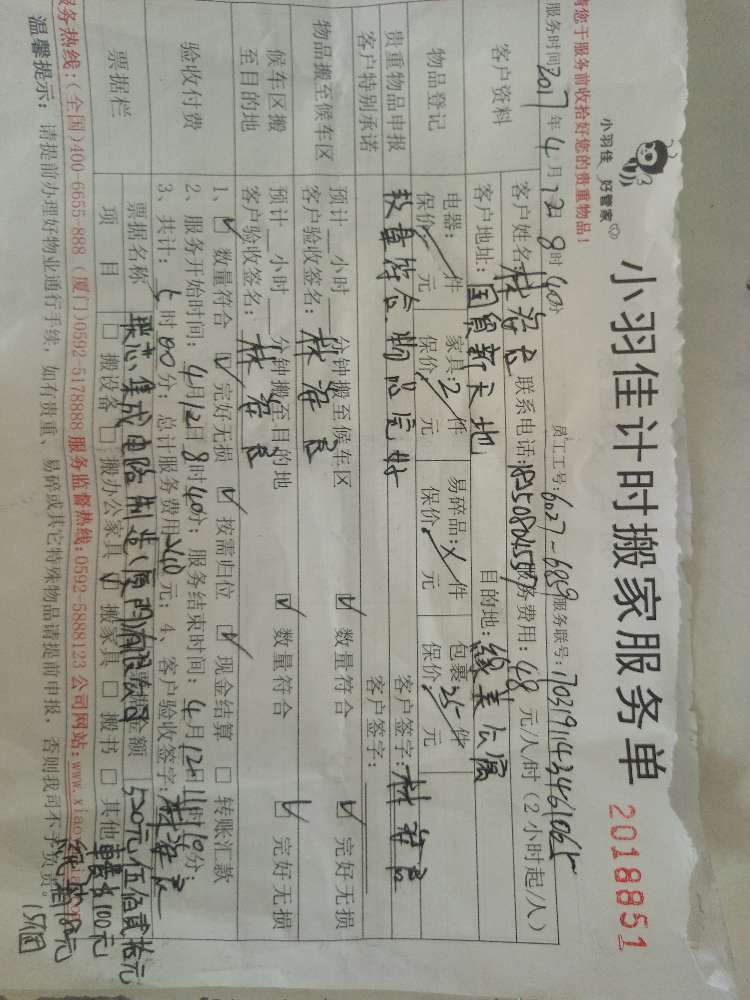 小羽佳计时搬家服务单
2018851
小羽佳 好管家
请您于服务前收拾好您的贵重物品！
员工工号：6027-6859 服务联号：
服务时间 2017年4月12日8时40分
客户资料
客户姓名： 联系电话： 服务费用：48元/人/时（2小时起/人）
客户地址：国贸新天地 目的地：缘美公寓
物品登记
电器：/件 家具：2件 易碎品：X件 包裹35件
保价/元 保价/元 保价/元 保价/元
贵重物品申报 数量符合.物品完好 客户签字：
客户特别承诺 客户签字：
物品搬至候车区
预计 小时 分钟搬至候车区 ☑数量符合 ☑完好无损
客户验收签名：
候车区搬至目的地
预计 小时 分钟搬至目的地 ☑数量符合 ☑完好无损
客户验收签名：
验收付费
1、☑数量符合 ☑完好无损 ☑按需归位 ☑现金结算 □转账汇款
2、服务开始时间：4月12日8时40分；服务结束时间：4月12日11时10分；
3、共计：5时00分；总计服务费用240元；4、客户验收签字：
票据栏
票据名称 集成电路制造(厦门)有限公司 票据金额 520元伍佰贰拾元
项目 □搬设备 □搬办公家具 ☑搬家具 □搬书 □其他 车费 100元
纸箱180元
15个
服务热线：(全国)400-6655-888 (厦门)0592-5178888 服务监督热线：0592-5888123 公司网站：www.xiao
温馨提示：请提前办理好物业通行手续，如有贵重、易碎或其它特殊物品请提前申报，否则我司不予负责。